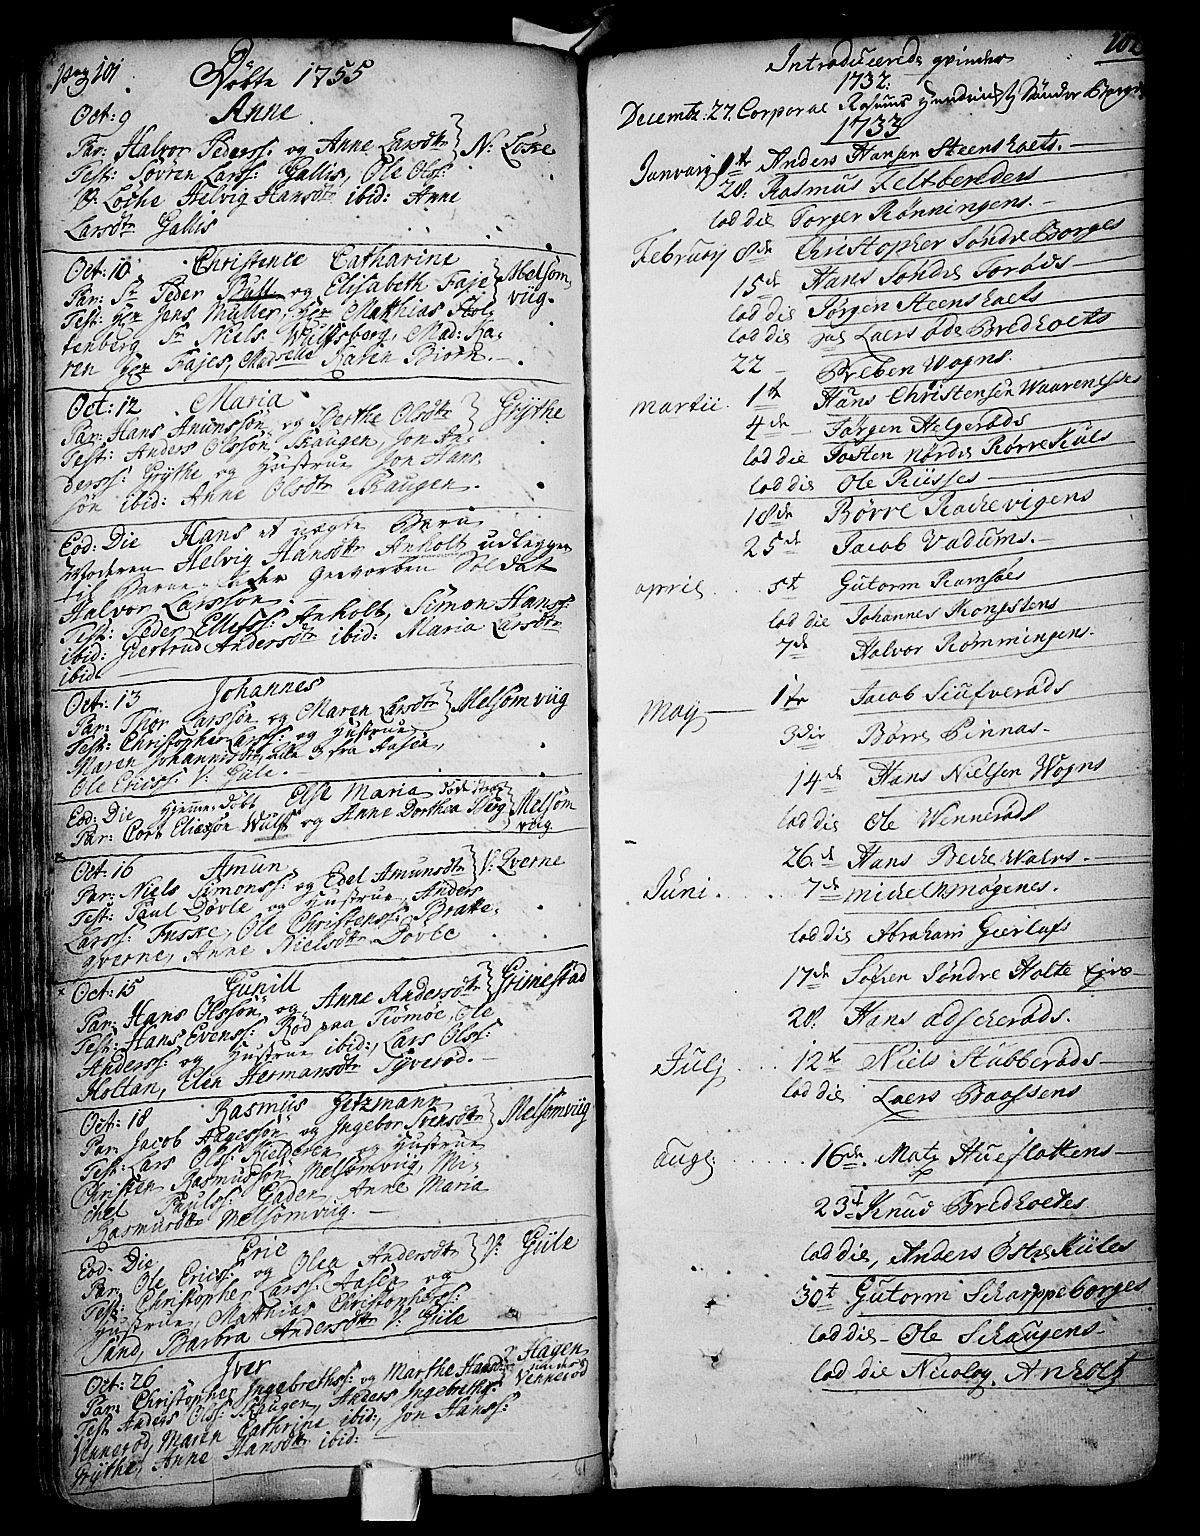 pag 101
Döbte 1755
Oct: 9 Anne
Par: Halvor Pederss: og Anne Larsdtr } N: Löske
Test: Sövren Larss: Gallis, Ole Olss:
V: Loche Helvig Hansdtr ibid: Anne
Larsdtr Gallis
Oct: 10 Christence Catharine
Par: Sr Peder Bull og Elisabeth Faje } Melsom
Test: Hr Jens Müller, Hr Matthias Stol- viig.
tenberg Sr Niels Wulfsberg, Mad: Ka-
ren Fajes, Madselle Karen Biörn.
Oct: 12 Maria
Par: Hans Amunssön og Berthe Olsdtr } Grÿthe
Test: Anders Olssön Skaugen, Jon An-
derss: Grÿthe og Hustrue Jon Hans
sön ibid: Anne Olsdtr Skaugen.
Eod: Die Hans et uægte Barn
Moderen Helvig Hansdtr Anholt udlægger
til Barne-Fader Gevorben Soldat
Halvor Larssön.
Test: Peder Ellefss: Anholt, Simon Hanss:
ibid: Giertrud Andersdtr ibid: Maria Larsdtr
ibid
Oct: 13 Johannes
Par: Thor Larssön og Maren Larsdtr } Melsomviig
Test: Christopher Larss: og Hustrue
Maren Johannisdtr, alle 3 fra Aasen,
Ole Ericss: V: Giile.
Eod: Die Hjemme-Döbt Else Maria
Par: Cort Eliassön Wulff og Anne Dorthea Berg } Melsom
viig
Oct: 16 Amun
Par: Niels Simonss: og Edel Amunsdtr } V: Qverne
Test: Paul Dövle og Hustrue, Anders
Larss: Fuske, Ole Christenss: Bratte-
qverne, Anne Nielsdtr Dövle
x Oct: 15 Gunill
Par: Hans Olssön og Anne Andersdtr } Grimestad
Test: Hans Evenss: Röd paa Tiömöe, Ole
Anderss: og Hustrue ibid:, Lars Olss:
Holtan, Elen Hermansdtr Gÿveröd.
Oct: 18 Rasmus Jetzmann
Par: Jacob Aagessön og Ingebor Svensdtr } Melsomviig
Test: Lars Olss: Kielderen og Hustrue
Christen Rasmussön Melsomviig, Mi-
chel Paulss: Gaden, Anne Maria
Rasmusdtr Melsomviig.
Eod: Die Eric
Par: Ole Ericss: og Olea Andersdtr } V: Giile
Test: Christopher Larss: Aasen og
Hustrue, Matthias Christopherss:
Sand, Barbra Andersdtr V: Giile
Oct: 26 Iver
Par: Christopher Ingebrethss: og Marthe Hansdtr } Hagen
under Vennerød
Test Anders Olss: Skaugen, Anders Ingebrethss:
Vennerød, Maren Cathrine ibid:, Jon Hanss:
Grÿthe, Anne Hansdtr ibid:
102
Introduceerede qvinder
1732.
Decembr: 27. Corporal Rasmus Hendrichs Sönder Borge
1733
Januarij 1te Anders Hansen Steensholts.
20. Rasmus Feltbereders
Eod die Torger Rönningens.
Februarij 8de Christopher Söndre Borges
15de Hans Söndre Toröds
Eod die Jörgen Steensholts
Eod die Laers Bredholts
22 Preben Wogns.
Martii 1te Hans Christensen Waarenesses
4de Jörgen Helgeröds
Eod die Josten Nordre RörreKuls
Eod die Ole Riisses
18de Börre Rachevigens
25de Jacob Vadums.
April 5te Gutorm Ramsöes
Eod die Johannes Kongstens
7de Halvor Römmingens.
Maij 1te Jacob Skifveröds
3die Börre Pinnas.
14de Hans Nielsen Wogns
Eod die Ole Winneröds
26de Hans Beche Walvs.
Juni 7de Michel Mogenes.
Eod die Abraham Gierlufs
17de Sören Söndre Holte
20. Hans Adscheröds.
Julij 12te Niels Stubberöds
Eod die Laers Baassens
Aug: 16de Matz Hueflottens
23de Knud Bredholtes
Eod die, Anders ÖstreKules
30te Gutorm Scharppeborges
Eod die Ole Schaugens
Eod die Nicolay Anholt